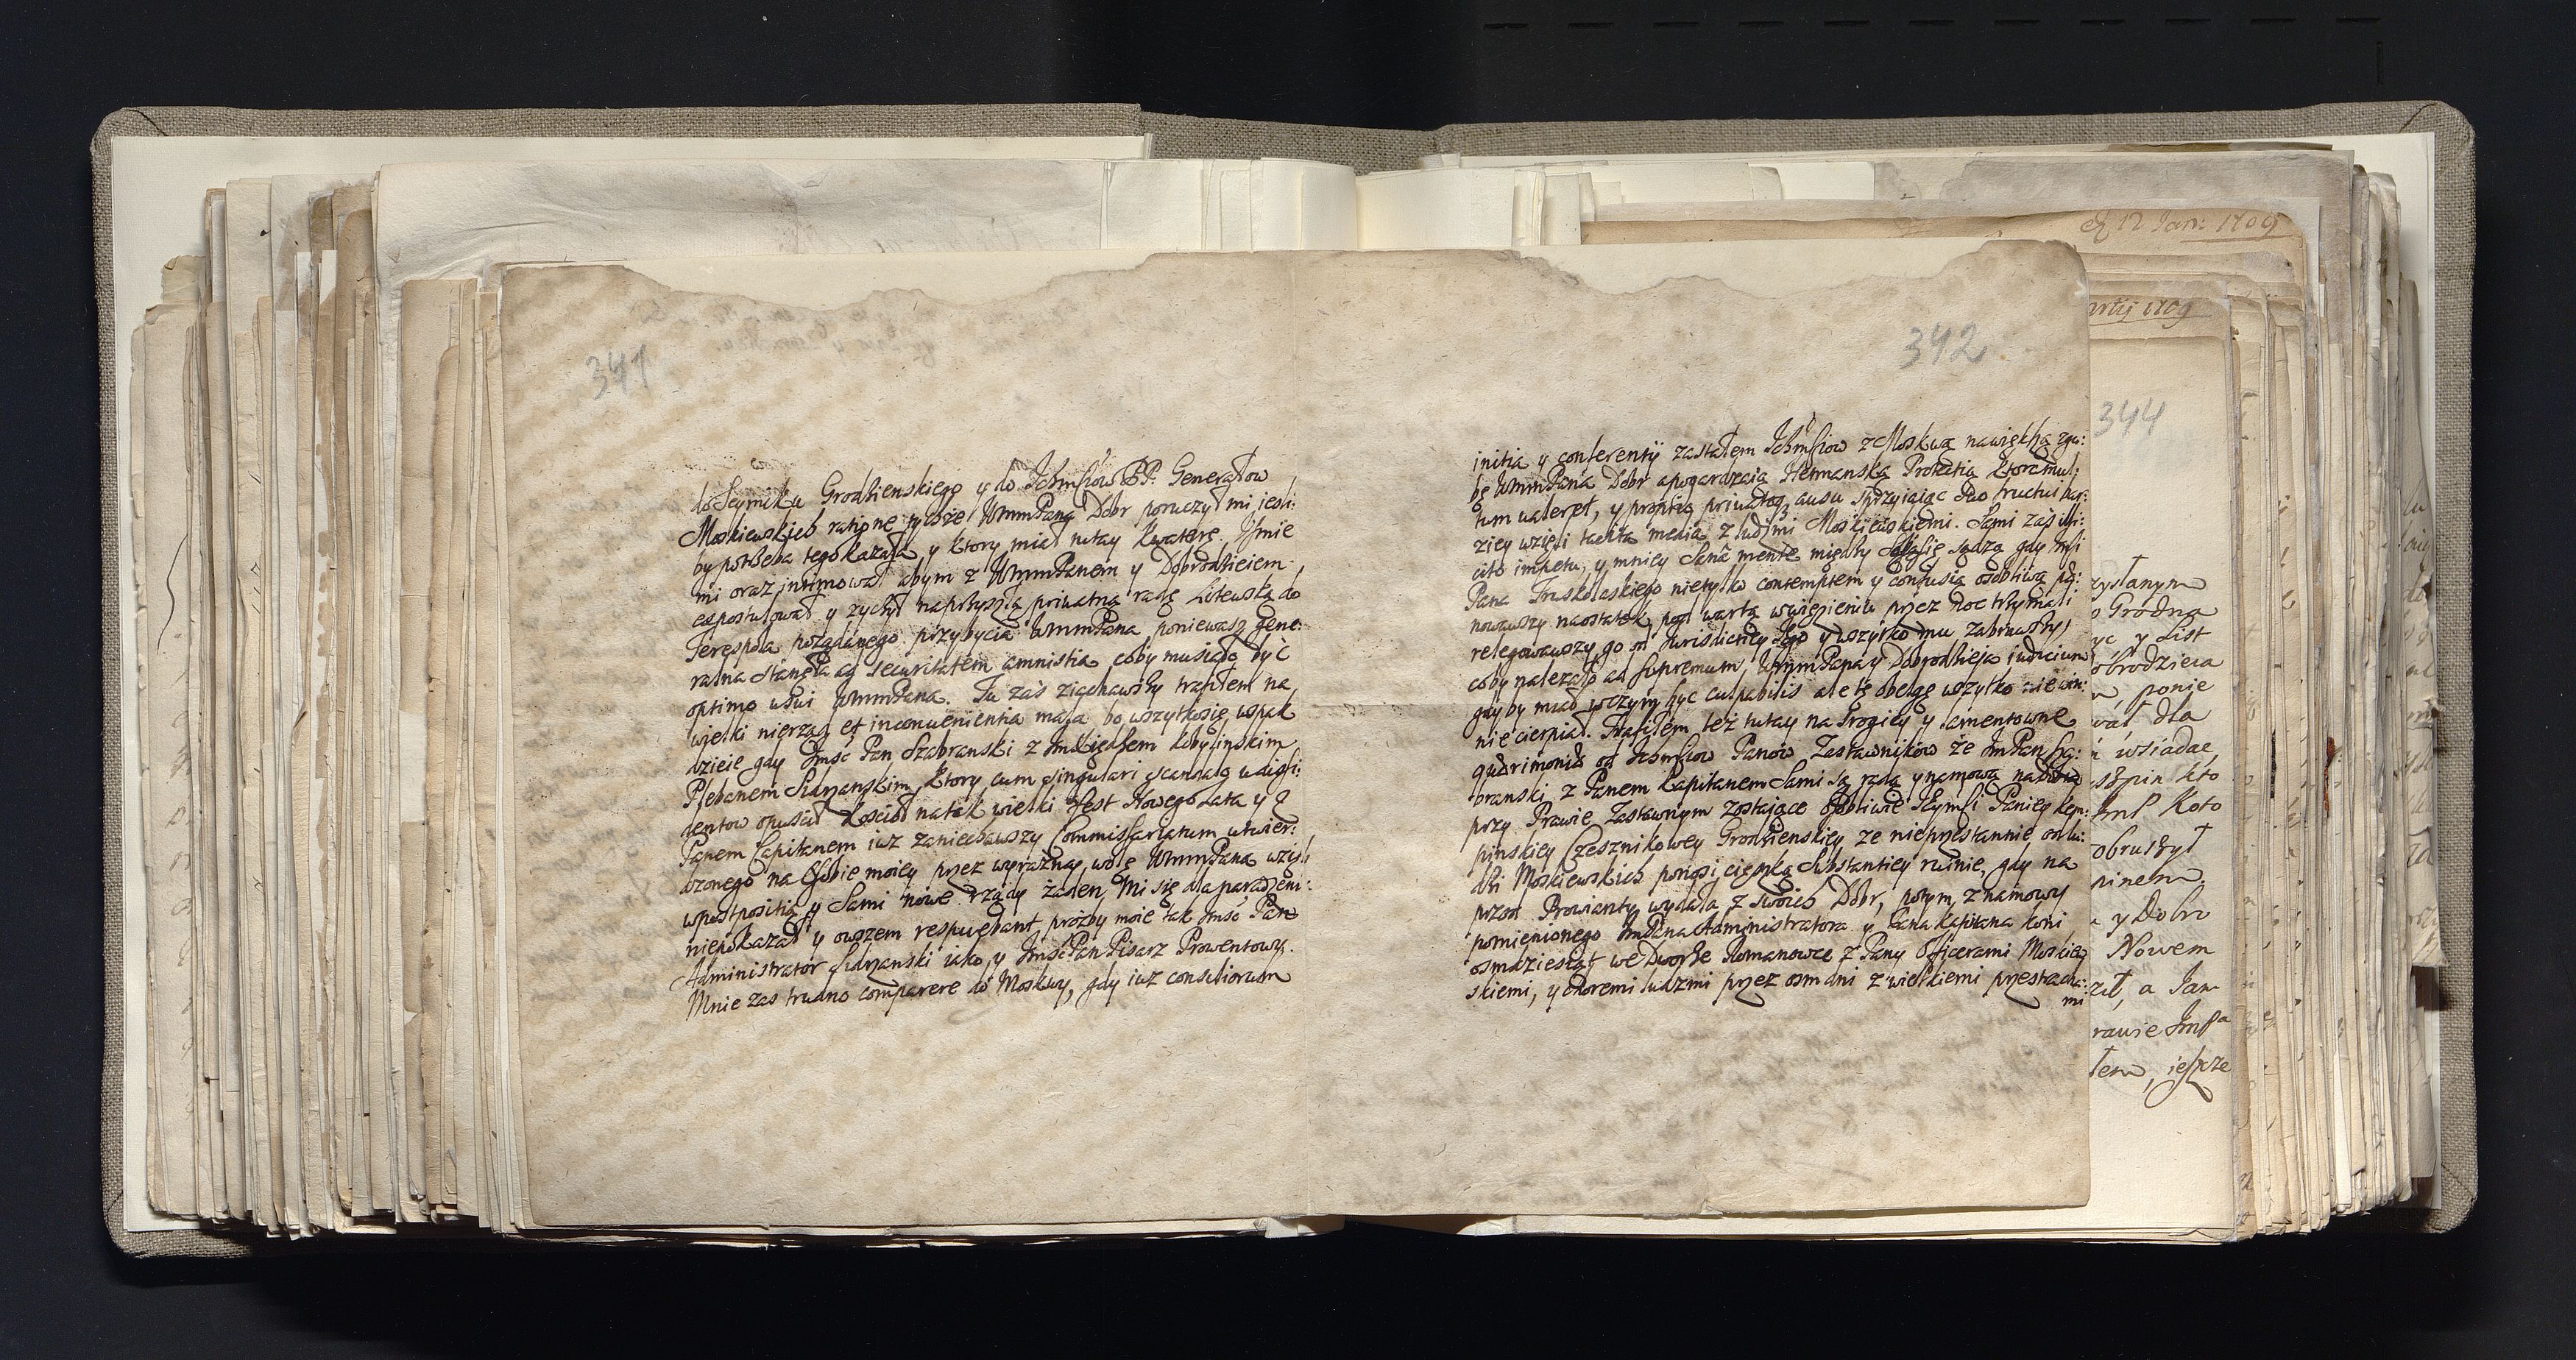 341
do Seymiku Grodzienskiego y do Ichmsciow PP. Generałow
Moskiewskich ratione tychże WmmPana Dobr poruczył mi jeśli:
by potrzeba tego kazała, y ktory miał tutay kwaterę. Tenże
mi oraz intimował abym z WmmPanem y Dobrodzieiem
expostulował y zychł na przyszłą priwatną radę Litewską do
Terespola pożądanego przybycia WmmPana, poniewasz gene:
ralna stanęła ad securitatem amnistia, coby musiało być
optimo usui WmmPana. Tu zaś ziachawszy trafiłem na
wielki nierząd et inconuenientia mala bo wszytkosię wspak
dzieie gdy Jmść Pan Szabranski z Xiędzem Kobylinskim
Plebanem Sidrzanskim, ktory cum singulari scandalo
opuścił Kościoł na tak wielki Fest Nowego Lata y Z
Panem Capitanem iuż zaniechawszy Commissariatum utwier:
dzonego na Osobie moiey przez wyraźną wolę WmmPana wzieli
w postpositią y Sami nowe rządy żaden Mi się
niepokazał y owszem respuebant prozby moie tak Jmść Pan
Administrator Sidrzanski iako y Jmść Pan Pisarz Prowentowy.
Mnie zas trudno comparere do Moskwy, gdy iuż consiliorum
342
initia y conferentÿ zastałem Ichmsciow z Moskwą na większą zgu:
bę WmmPana Dobr a pogardzaią Hetmanską Protectią
tum ualeret, y propria priuatoq ausu sprzyiaiąc suo fructui
ziey wzięli tacita media z ludzmi Moskiewskiemi. Sami zaś
cito impetu, y mniey Sana mente między sobą się sądzą gdy Jmści
Pana Truskolaskiego nietylko contemptem y confusią osobliwą
nowawszy naostatek pod wartą w więzieniu przez noc trzymali
relegowawszy go od Jurisdictiey Jego y wszytko mu zabrawszy,
coby należało ad Supremum WmmPana y Dobrodzieja iudicium
gdyby miał w czym być culpabilis ale tę obelgę wszytko niewin:
nie cierpiał. Trafiłem też tutay na srogie y lamentowne
quaerimonie od Ichmsciow Panow Zastawnikow że JmPan Sza:
branski z Panem Kapitanem Sami są radą y namową
przy Prawie Zastawnym zostaiące osobliwie Jeymsci Paniey Kem:
pinskiey Czesznikowey Grodzienskiey, ze nieprzestannie od lu:
dzi Moskiewskich ponosi cięszką Substantiey ruinę, gdy na
przod Prowianty wydała z swoich Dobr, potym z namowy
pomienionego JmPana Administratora y Pana Kapitana koni
osmdziesiąt we Dworze Romanowce z Pany Officerami Moskiew
skiemi, y choremi ludzmi przez osm dni z wielkiemi przestracha:
mi
12 Jan: 1709
1709
344
Grodna
y List
ponie
dla
wsiadać,
kto
y Dobro
Nowem
a Jan
ieszcze